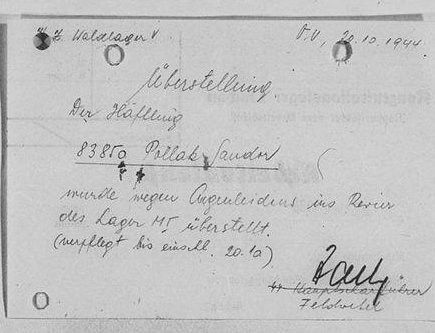 K.Z. Waldlager V          O.U., 20.10.1944.
Überstellung
Der Häftling
83850 Pollak Sandor
wurde wegen Augenleidens ins Revier
des Lager M I überstellt.
(verpflegt bis einschl. 20.10)
SS Hauptscharführer
Feldwebel